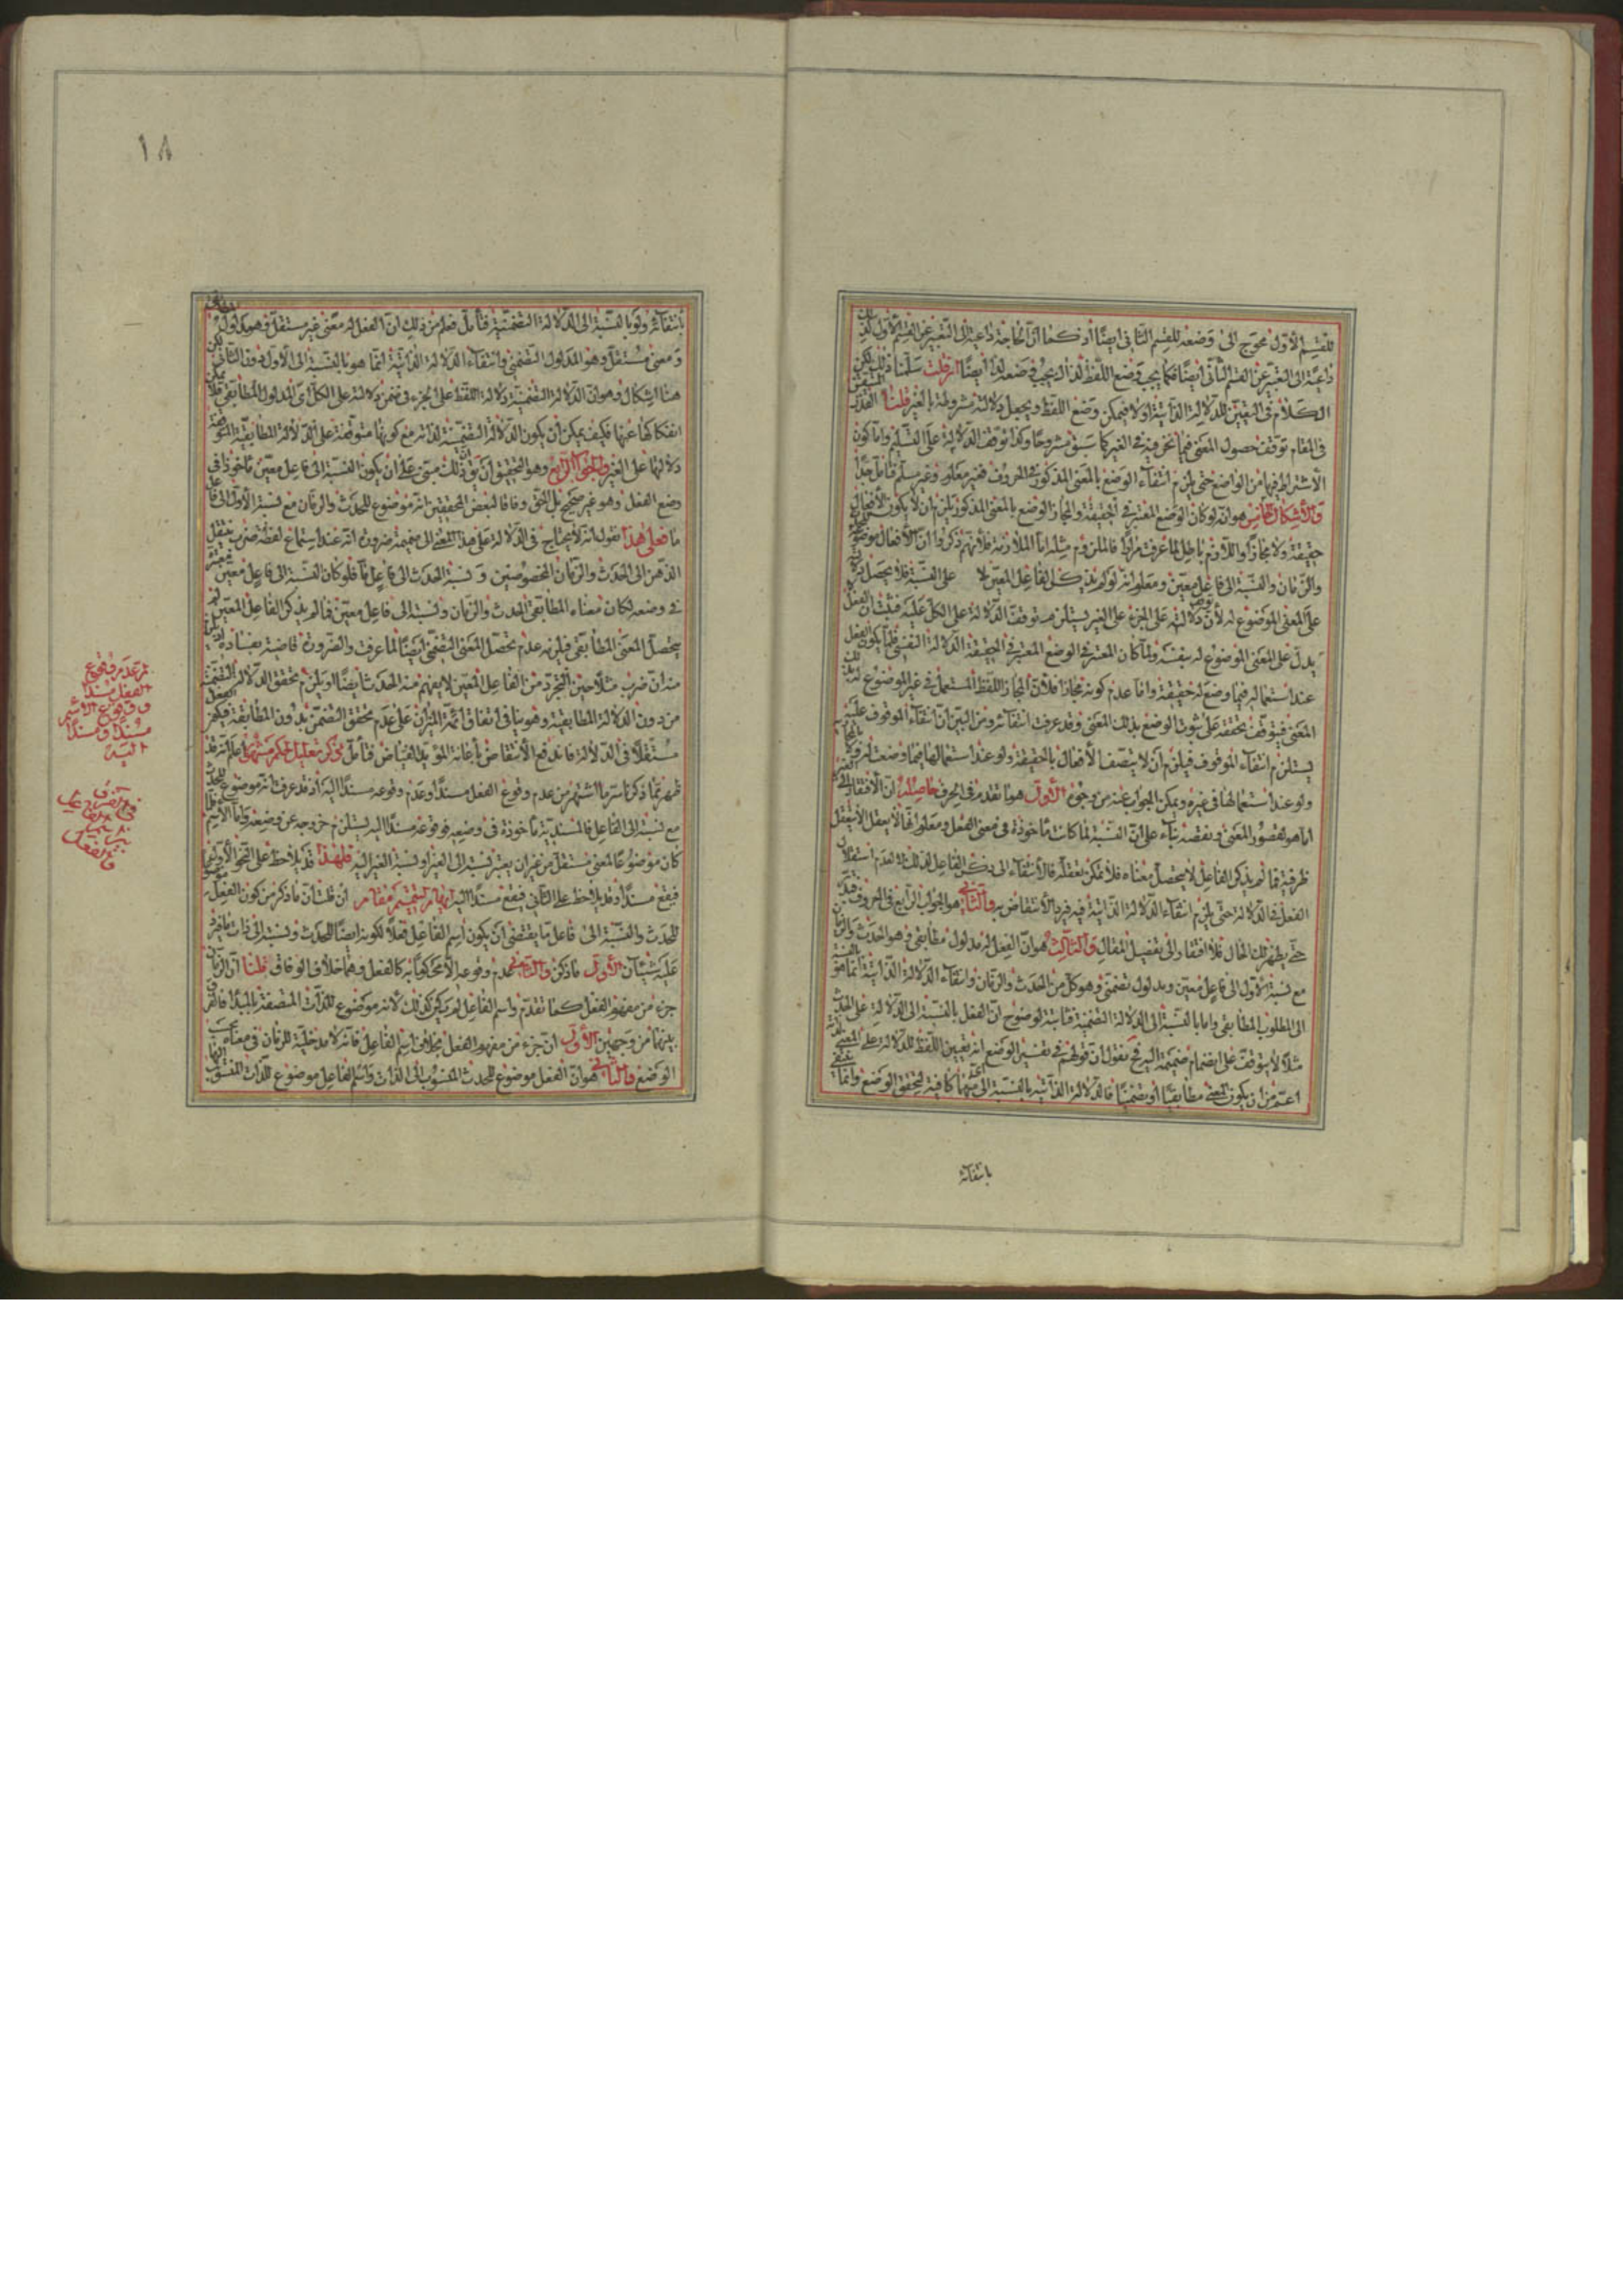 للقسم الأوّل محوج الى وضعه للقسم الثاني ايضًا اذ كما انّ الحاجة داعية الى التعبير عن القسم الأوّل كذلك
داعية الى التعبير عن القسم الثاني ايضًا فكما يجب وضع اللّفظ لذاك يجب وضعه لهذا ايضًا ان قلت سلّمنا ذلك لكن
الكلام في التعيين للدلالة الذاتية اولا فيمكن وضع اللفظ ويجعل دلالته مشروطة بالغير قلنا القدر المتيقن
في المقام توقف حصول المعنى فيما نحن فيه في الغير كما سبق مشروحًا وكذا توقف الدلالة على التسليم وامّا كون
الأشتراط فيها من الواضع حتى يلزم انتفاء الوضع بالمعنى المذكور في الحروف فغير معلوم وغير مسلّم فتأمّل جدًّا
والأشكال الخامس هو انه لو كان الوضع المعتبر في الحقيقة والمجاز الوضع بالمعنى المذكور يلزم ان لا يكون الأفعال
حقيقة ولا مجازًا واللازم باطل لما عرفت مرارًا فالملزوم مثله امّا الملازمة فلأنهم ذكروا انّ الأفعال موضوعة للحدث
والزمان والنسبة الى فاعل معيّن ومعلوم انه لو لم يذكر الفاعل المعيّن لا على النسبة فلا يحصل
على المعنى الموضوع له لأن توقف دلالته على الجزء على الغير يستلزم توقف الدلالة على الكل عليه فثبت ان الفعل
يدلّ على المعنى الموضوع له بنفسه ولما كان المعتبر في الوضع المعتبر في الحقيقة الدلالة النفسي فلا يكون الفعل
عند استعماله فيما وضع له حقيقة وامّا عدم كونه مجازا فلأن المجاز اللفظ المستعمل في غير الموضوع له
المعنى فيتوقف تحققه على ثبوت الوضع بذلك المعنى وقد عرفت انتفائه ومن البيّن انّ انتفاء الموقوف عليه
يستلزم انتفاء الموقوف فيلزم أن لا يتصف الأفعال بالحقيقة ولو عند استعمالها فيما وضعت له ولا بالمجاز
ولو عند استعمالها في غيره ويمكن الجواب عنه من وجوه الأوّل هو ما تقدم في الحرف حاصله انّ الأفتقار الى الغير
امّا هو لقصور المعنى ونقصه بناء على انّ النسبة لما كانت مأخوذة في معنى الفعل ومعلوم انها لا يعقل الا بتعقل
طرفيه فما لم يذكر الفاعل لا يتحصّل معناه فلا يمكن تعقله فالأنتفاء الى ذكر الفاعل لذلك لا لعدم استقلال
الفعل في الدلالة حتى يلزم انتفاء الدلالة الذاتية فيه فيرد الأنتقاض به والثاني هو الجواب الرابع في الحروف فتدبّر
حتى يظهر لك الحال فلا افتقار الى تفصيل المقال والثالث هو انّ الفعل له مدلول مطابقي وهو الحدث والزمان
مع نسبة الأوّل الى فاعل معيّن ومدلول تضمّني وهو كل من الحدث والزمان وانتفاء الدلالة الذاتية انما هو بالنسبة
الى المطلوب المطابقي واما بالنسبة الى الدلالة التضمنية فثابتة لوضوح انّ الفعل بالنسبة الى الدلالة على الحدث
مثلًا لا يتوقف على انضمام ضميمة اليه فح نقول ان قولهم في تفسير الوضع انه تعيين اللّفظ للدلالة على المعنى
اعمّ من ان يكون المعنى مطابقيًّا أو تضمّنيًّا فالدلالة الذاتية بالنسبة الى ايّهما كافية لتحقق الوضع وانما
بانتفائه
١٨
بانتفائه ولو بالنسبة الى الدلالة التضمّنية فتأمّل فعلم من ذلك انّ الفعل له معنى غير مستقلّ وهو مدلول
ومعنى مستقلّ وهو المدلول التضمّني وانتفاء الدلالة الذاتية انّما هو بالنسبة الى الأوّل دون الثاني لكن
هنا اشكال وهو ان الدلالة التضمنية دلالة اللفظ على الجزء في ضمن دلالته على الكل أي المدلول المطابقي فلا يمكن
انفكاكها عنها فكيف يمكن أن يكون الدلالة التضمنية لذاته مع كونها متوقفة على الدلالة المطابقية المتوقفة
دلالتها على الغير والجواب الرابع وهو التحقيق ان يق انّ ذلك مبنى على ان يكون النسبة الى فاعل معيّن مأخوذًا في
وضع الفعل وهو غير صحيح بل الحق وفاقا لبعض المحققين انه موضوع للحدث والزمان مع نسبة الأوّل الى فاعل
ما فعلى هذا نقول انه لا يحتاج في الدلالة على هذا المعنى الى ضميمة ضرورة انه عند استماع لفظة ضرب ينتقل
الذهن الى الحدث والزمان المخصوصين ونسبة الحدث الى فاعل ما فلو كان النسبة الى فاعل معيّن معتبرة
في وضعه لكان معناه المطابقي الحدث والزمان ونسبة الى فاعل معيّن فما لم يذكر الفاعل المعيّن لم
يتحصّل المعنى المطابقي فيلزمه عدم تحصّل المعنى التضمّني ايضًا لما عرفت والضرورة قاضية بفساده
منه انّ ضرب مثلًا حين التجرّد من الفاعل المعيّن لا يفهم منه الحدث ايضًا او يلزم تحقق الدلالة التضمنية
من دون الدلالة المطابقية وهو ينافي اتفاق ائمة الميزان على عدم تحقق التضمّن بدون المطابقة فيكون الفعل
مستقلًا في الدلالة فاندفع الأنتقاض بأعانة المؤيد الفياض فتأمل ذكر تعليل لحكم مشهور اعلم انه قد
ظهر بما ذكرنا سرّ ما اشتهر من عدم وقوع الفعل مسندًا وعدم وقوعه مسندًا اليه اذ قد عرفت انه موضوع للحدث
مع نسبته الى الفاعل فالمسندية مأخوذة في وضعه فوقوعه مسندًا اليه يستلزم خروجه عن وضعه وامّا الأسم فلما
كان موضوعًا لمعنى مستقل من غير ان يعتبر نسبته الى الغير او نسبة الغير اليه فلهذا قد يلاحظ على النحو الأوّل
فيقع مسندًا وقد يلاحظ على الثاني فيقع مسندًا اليه ابهام لتتميم مقام ان قلت انّ ما ذكر من كون الفعل
للحدث والنسبة الى فاعل ما يقتضي ان يكون اسم الفاعل فعلًا لكونه ايضًا للحدث ونسبته الى ذات ما فيرد
عليه شيئان الأوّل ما ذكر والثاني عدم وقوعه الّا محكومًا به كالفعل وهما خلاف الوفاق قلنا انّ الزمان
جزء من مفهوم الفعل كما تقدّم واسم الفاعل لم يكن كذلك لأنه موضوع للذّات المتّصفة بالمبدأ فالفرق
بينهما من وجهين الأوّل انّ جزء من مفهوم الفعل بخلاف اسم الفاعل فانه لا مدخلية للزمان في معناه بحسب
الوضع والثاني هو انّ الفعل موضوع للحدث المنسوب الى الذات واسم الفاعل موضوع للذّات المنسوب اليها